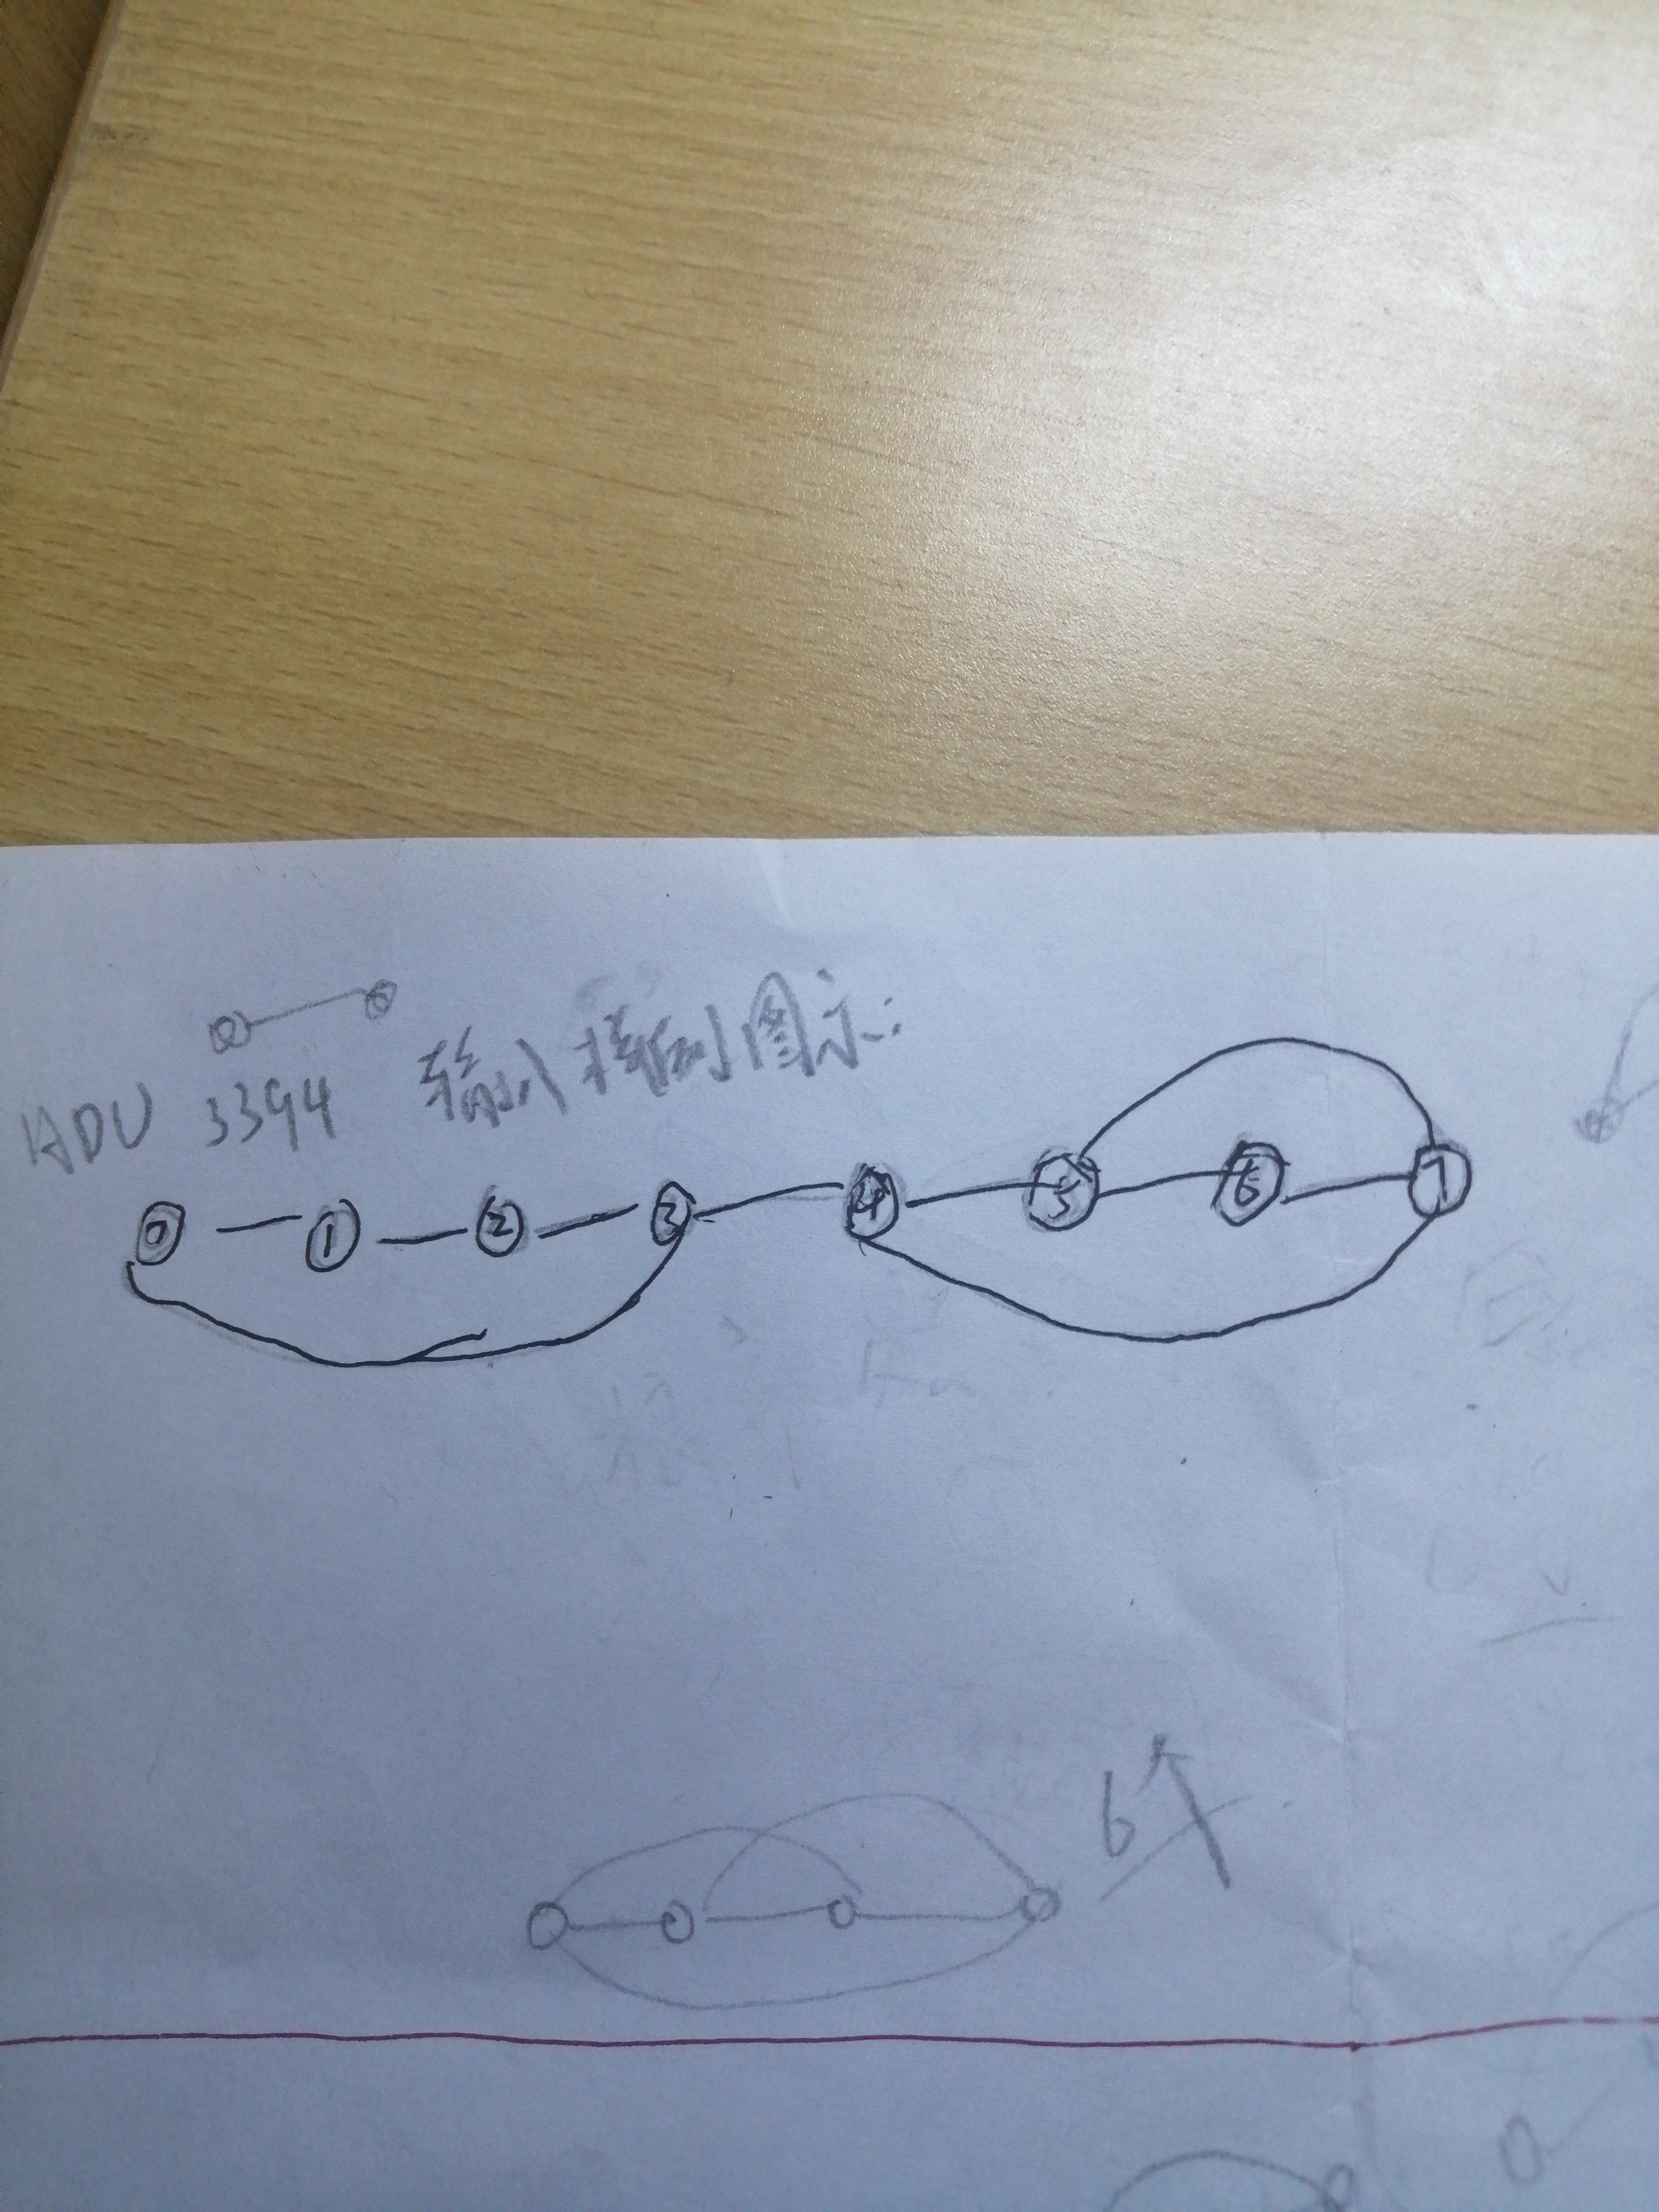 HDU 3394 输入样例图示:
0 1 2 3 4 5 6 7
6个